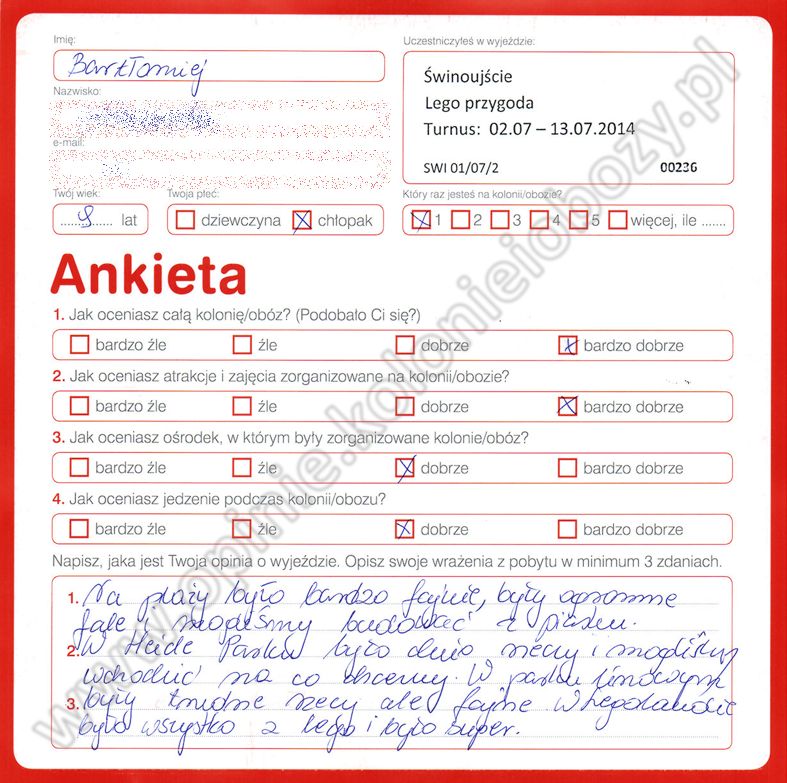 Imię:
Bartłomiej
Nazwisko:
e-mail:
Twój wiek:
9 lat
Twoja płeć:
dziewczyna chłopak
Uczestniczyłeś w wyjeździe:
Świnoujście
Lego przygoda
Turnus: 02.07 – 13.07.2014
SWI 01/07/2 00236
Który raz jesteś na kolonii/obozie?
1 2 3 4 5 więcej, ile .......
Ankieta
1. Jak oceniasz całą kolonię/obóz? (Podobało Ci się?)
bardzo źle źle dobrze bardzo dobrze
2. Jak oceniasz atrakcje i zajęcia zorganizowane na kolonii/obozie?
bardzo źle źle dobrze bardzo dobrze
3. Jak oceniasz ośrodek, w którym były zorganizowane kolonie/obóz?
bardzo źle źle dobrze bardzo dobrze
4. Jak oceniasz jedzenie podczas kolonii/obozu?
bardzo źle źle dobrze bardzo dobrze
Napisz, jaka jest Twoja opinia o wyjeździe. Opisz swoje wrażenia z pobytu w minimum 3 zdaniach.
1. Na plaży było bardzo fajnie, były ogromne
fale i mogliśmy budować z piasku.
2. W Heide Parku było dużo rzeczy i mogliśmy
wchodzić na co chcemy. W parku linowym
3. były trudne rzeczy ale fajne w Legolandzie
było wszystko z lego i było super.
www.opinie.kolonieiobozy.pl